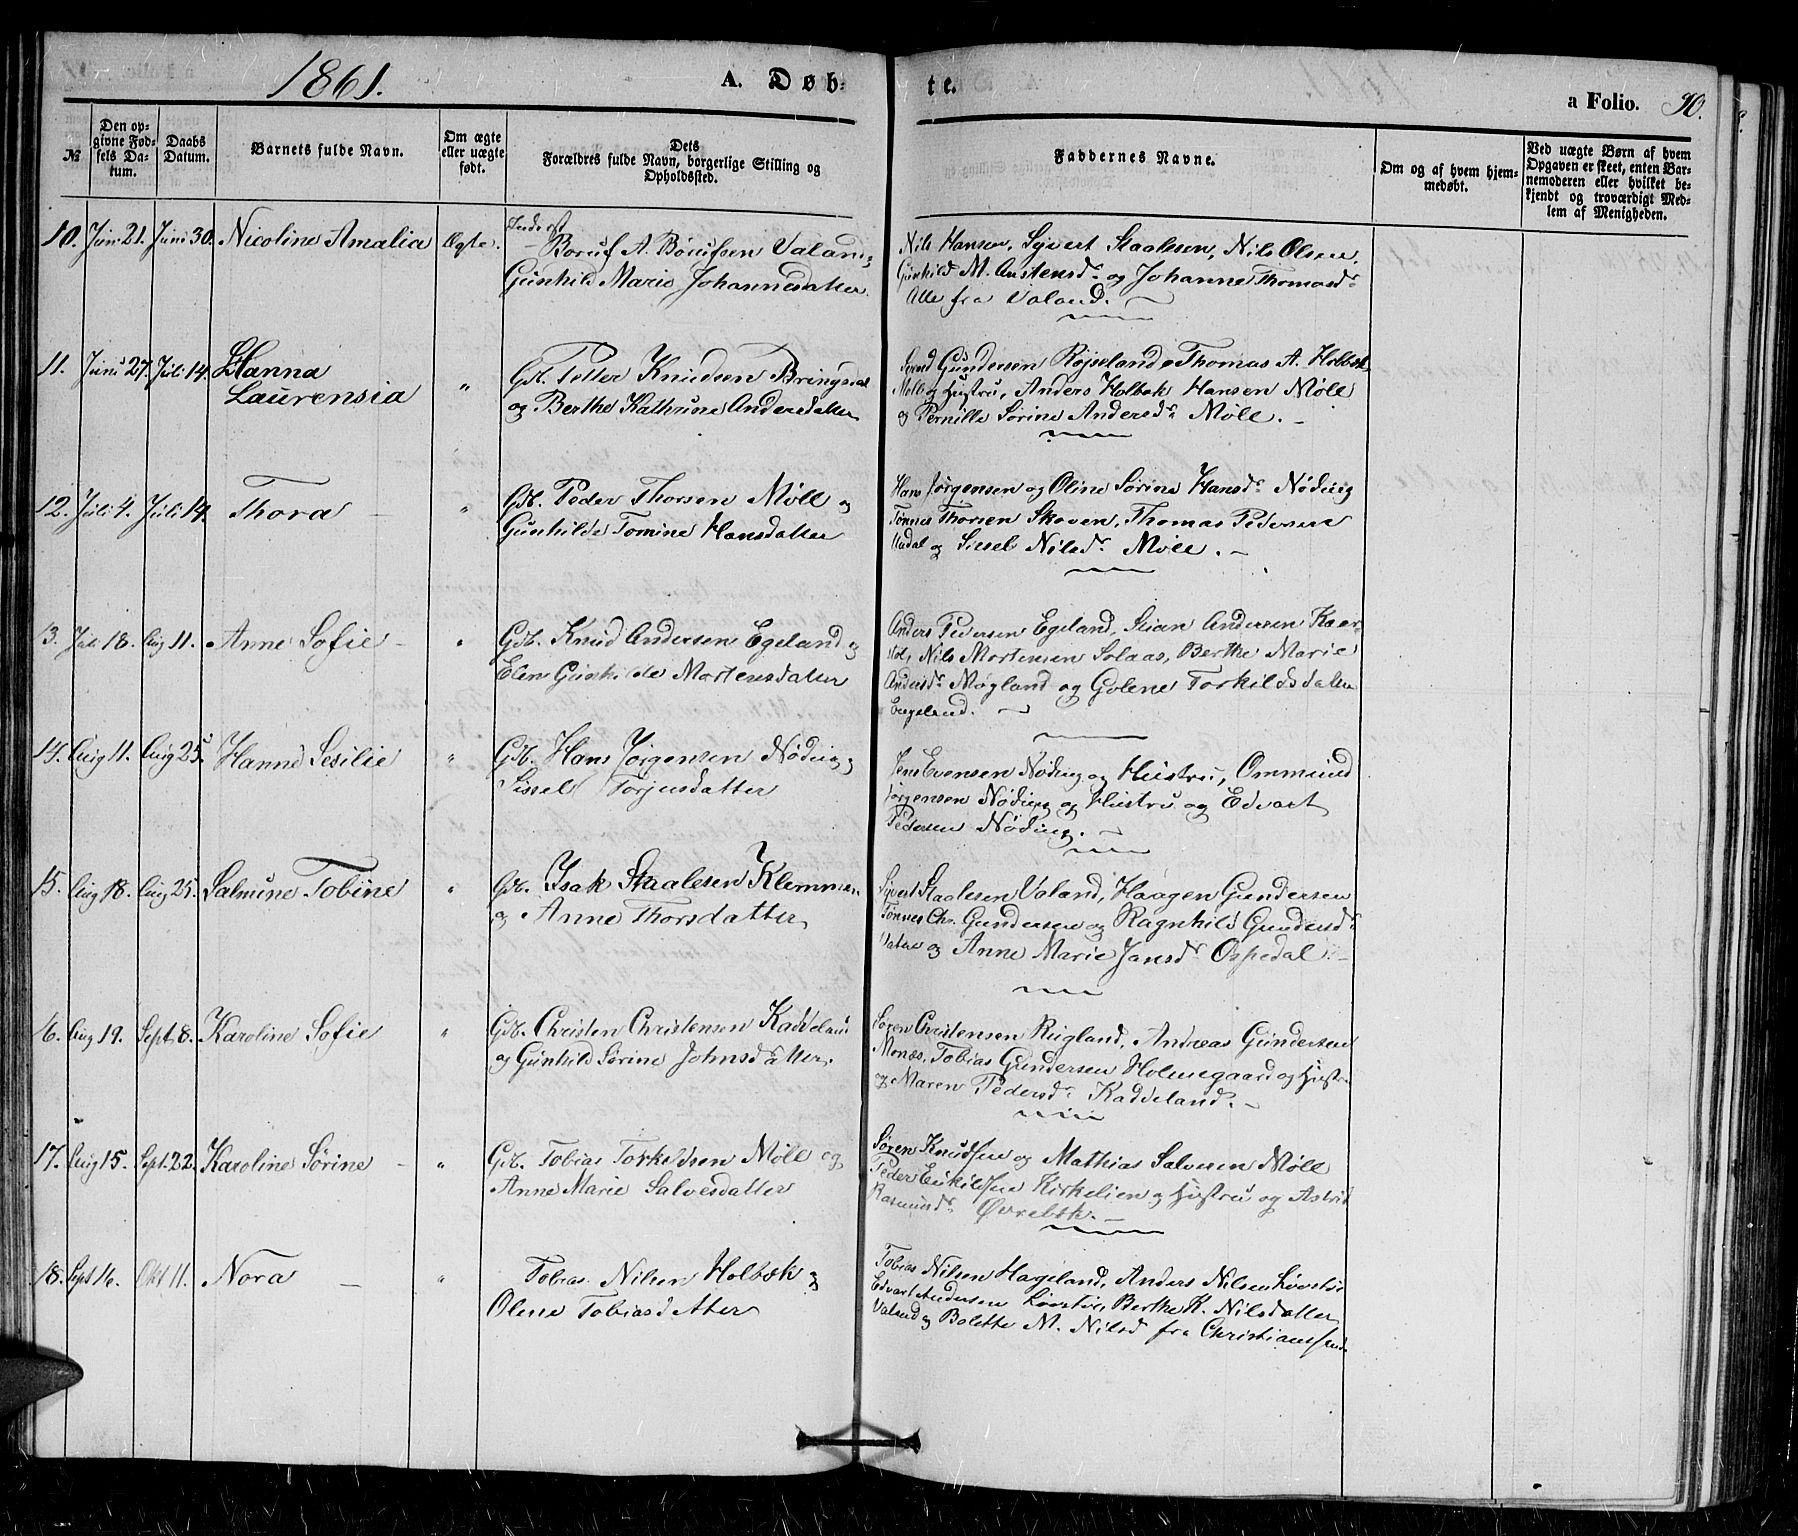 1861.
A. Døb=
te.
a Folio. 90.
№
Den op-
givne Fød-
sels Da-
tum.
Daabs
Datum.
Barnets fulde Navn.
Om ægte
eller uægte
født.
Dets
Forældres fulde Navn, borgerlige Stilling og
Opholdssted.
Faddernes Navne.
Om og af hvem hjem-
medøbt.
Ved uægte Børn af hvem
Opgaven er skeet, enten Bar-
nemoderen eller hvilket be-
kjendt og troværdigt Med-
lem af Menigheden.
10. Juni 21. Juni 30. Nicoline Amalia Ægte.
A. Valand
Gunhild Marie Johannesdatter.
Nils Hansen, Syvert Staalesen, Nils Olsen,
Gunhild M. Austensdr og Johanne Thomasdr
Alle fra Valand.
11. Juni 27. Juli 14. Hanna
Laurensia
"
Gdb. Petter Knudsen Bringsdal
og Berthe Kathrine Andersdatter
Gundersen Røjseland, Thomas A. Holbæk
Hustru, Anders Holbæk Hansen Møll
og Pernille Sørine Andersdr Møll.
12. Juli 4. Juli 14. Thora "
Gdb. Peder Thorsen Møll og
Gunhilde Tomine Hansdatter
Hans Jørgensen og Oline Sørine Hansdr Nøding
Tønnes Thorsen Skoven, Thomas Pedersen
Aadal og Sissel Nilsdr Møll.
13. Juli 18. Aug 11. Anne Sofie "
Gdb. Knud Andersen Egeland og
Elen Gunhilde Mortensdatter
Anders Pedersen Egeland, Stian Andersen
Nils Mortensen Solaas, Berthe Marie
Andersdr Møgland og Golene Torkildsdatter
Engeland.
14. Aug 11. Aug 25. Hanne Sesilie "
Gdb. Hans Jørgensen Nøding og
Sissel Torjusdatter
Jens Evensen Nøding og Hustru, Ommund
Jørgensen Nøding og Hustru og Edvart
Pedersen Nøding.
15. Aug 18. Aug 25. Salmine Tobine "
Gdb. Isak Staalesen Klemmen
og Anne Thorsdatter
Sivert Staalesen Valand, Haagen Gundersen
Tønnes Chr. Gundersen og Ragnhild Gundersdr
og Anne Marie Jansdr Ospedal.
16. Aug 19. Sept. 8. Karoline Sofie "
Gdb. Christen Christensen Kaddeland
og Gunhild Sørine Johnsdatter.
Søren Christensen Rugland, Andreas Gundersen
Monæs, Tobias Gundersen Holmegaard og Hustru
og Maren Pedersdr Kaddeland.
17. Aug 15. Sept. 22. Karoline Sørine "
Gdb. Tobias Torkeldsen Møll og
Anne Marie Salvesdatter
Søren Knudsen og Mathias Salvesen Møll
Peder Eskildsen Kirkelien og Hustru og Astrid
Rasmusdr Øvrebøk.
18. Sept 16. Okt 11. Nora "
Tobias Nilsen Holbæk og
Olene Tobiasdatter
Tobias Nilsen Hageland, Anders Nilsen Løvstøe
Edvart Andersen Løvstøe, Berthe K. Nilsdatter
Valand og Bolette M. Nilsd fra Christianssand.